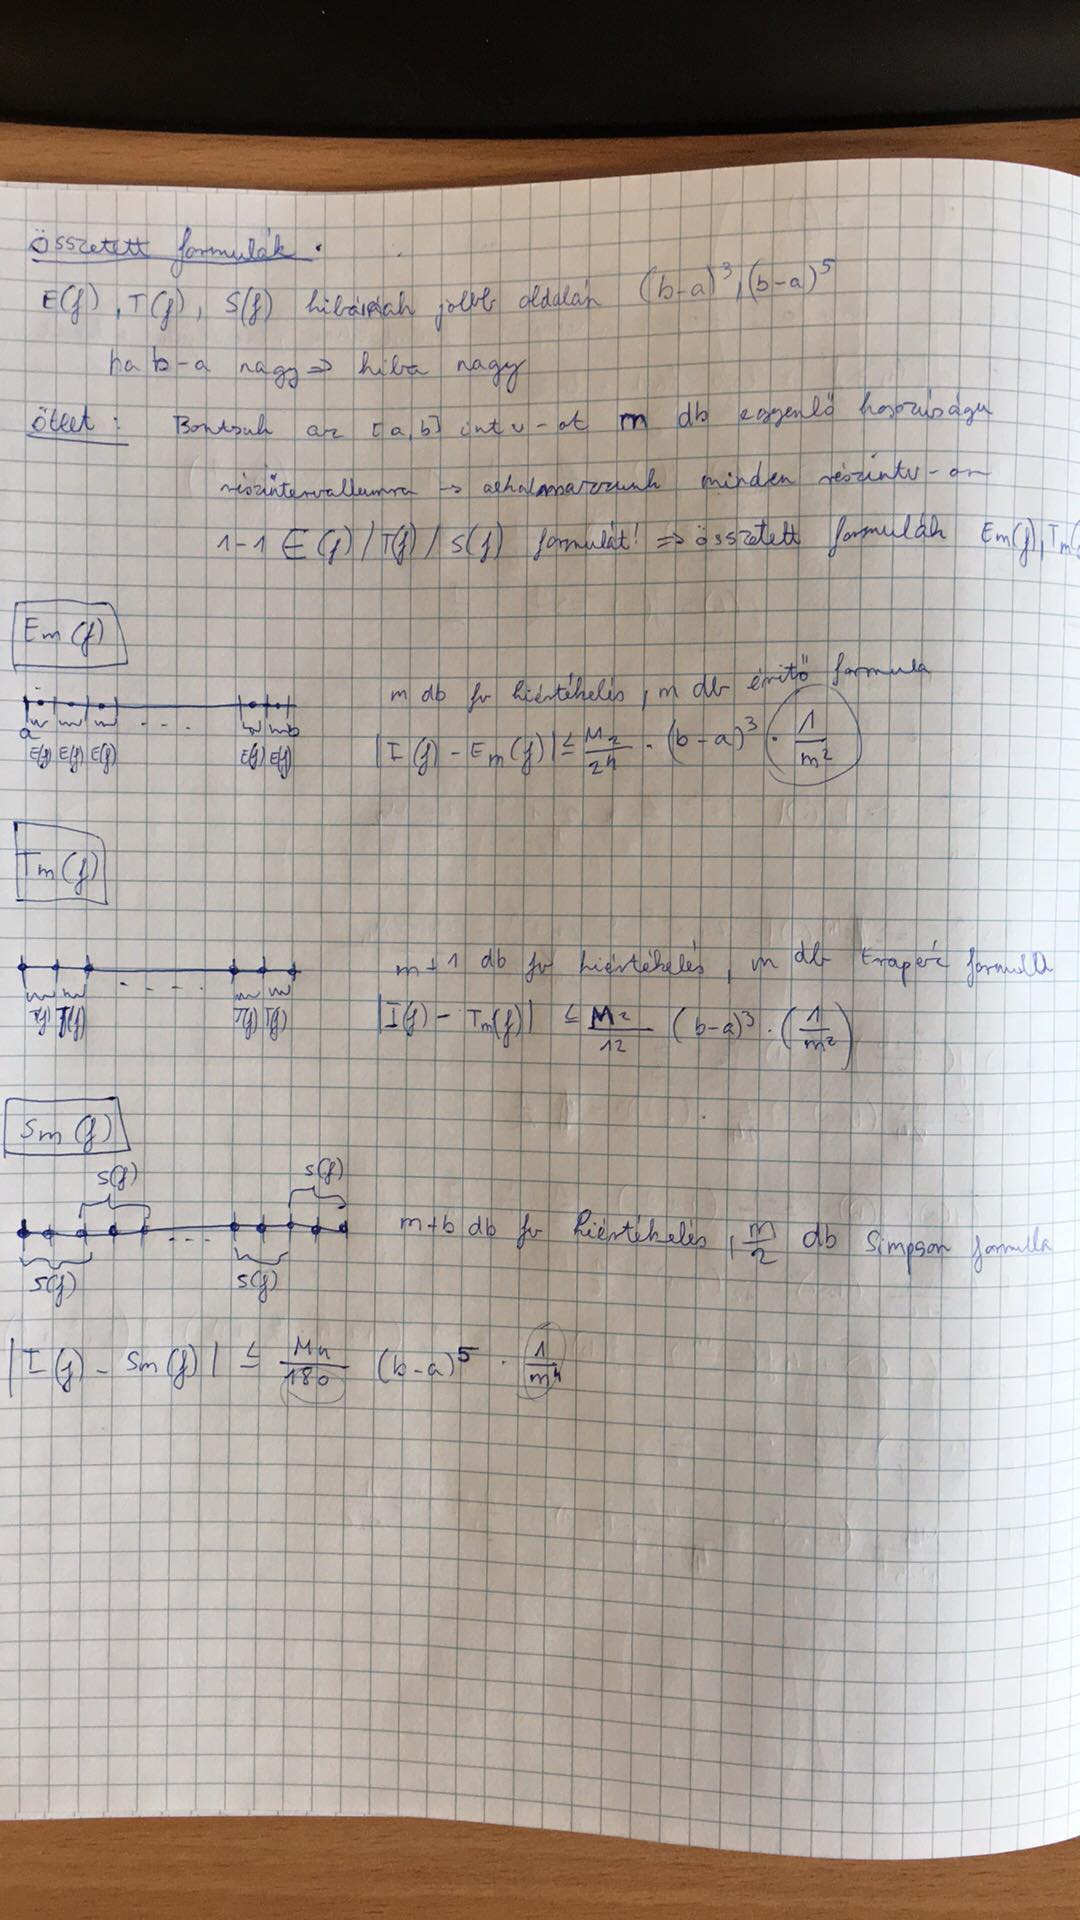 összetett formulák.
E(f), T(f), S(f) hibáinak jobb oldalán (b-a)³, (b-a)⁵
ha b-a nagy ⇒ hiba nagy
ötlet: Bontsuk az [a,b] intv-ot m db egyenlő hosszúságú
részintervallumra → alkalmazzunk minden részintv-on
1-1 E(f)/T(f)/S(f) formulát! ⇒ összetett formulák Em(f), Tm(
Em(f)
m db fv kiértékelés, m db érintő formula
a b
E(f) E(f) E(f) E(f) E(f)
|I(f) - Em(f)| ≤ M₂/24 · (b-a)³ · 1/m²
Tm(f)
m+1 db fv kiértékelés, m db trapéz formula
T(f) T(f) T(f) T(f)
|I(f) - Tm(f)| ≤ M₂/12 (b-a)³ · (1/m²)
Sm(f)
S(f) S(f)
m+b db fv kiértékelés, m/2 db Simpson formula
S(f) S(f)
|I(f) - Sm(f)| ≤ M₄/180 (b-a)⁵ · 1/m⁴